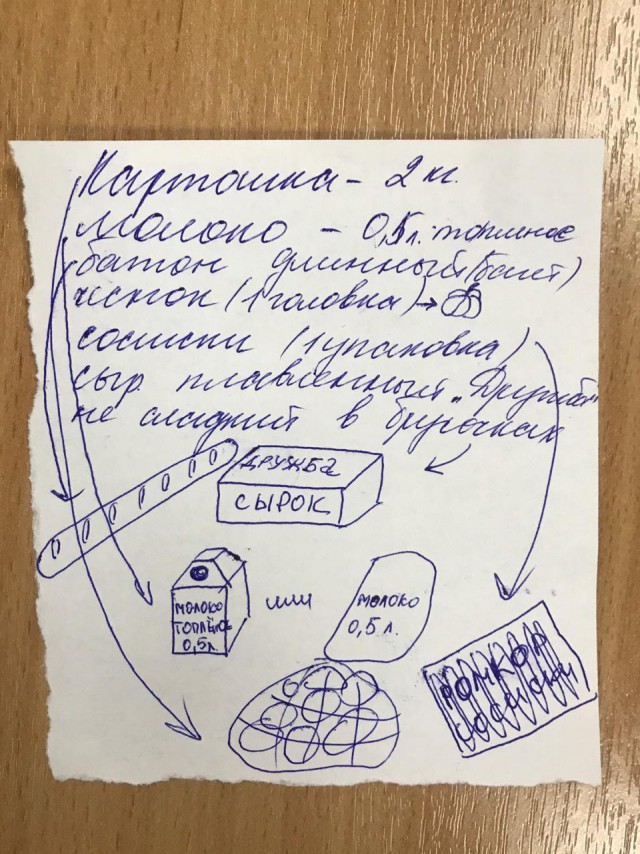 Картошка - 2 кг.
Молоко - 0,5 л. топленое
батон длинный (багет)
чеснок (1 головка) →
сосиски (1 упаковка)
сыр плавленный „Дружба"
не сладкий в брусочках
ДРУЖБА
СЫРОК
МОЛОКО
ТОПЛЁНОЕ
0,5л.
или
МОЛОКО
0,5 л.
РОМКОР
сосиски